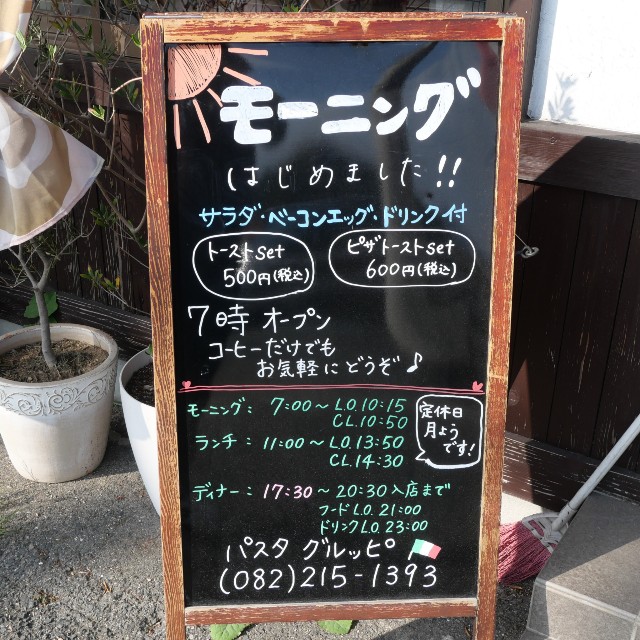 モーニング
はじめました!!
サラダ・ベーコンエッグ・ドリンク付
トーストset
500円(税込)
ピザトーストset
600円(税込)
7時 オープン
コーヒーだけでも
お気軽にどうぞ♪
モーニング: 7:00〜L.O.10:15
CL.10:50
ランチ: 11:00〜L.O.13:50
CL.14:30
定休日
月よう
です!
ディナー: 17:30〜20:30入店まで
フードL.O.21:00
ドリンクL.O.23:00
パスタ グルッピ
(082)215-1393